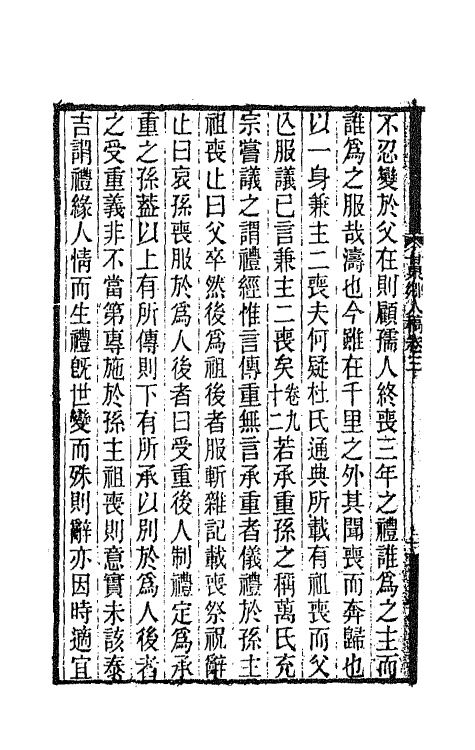 不忍變於父在則顧孺人終喪三年之禮誰為之主而
誰為之服哉濤也今雖在千里之外其聞喪而奔歸也
以一身兼主二喪夫何疑杜氏通典所載有祖喪而父
亾服議已言兼主二喪矣卷九十二若承重孫之稱萬氏充
宗嘗議之謂禮經惟言傳重無言承重者儀禮於孫主
祖喪止曰父卒然後為祖後者服斬雜記載喪祭祝辭
止曰哀孫喪服於為人後者曰受重後人制禮定為承
重之孫葢以上有所傳則下有所承以別於為人後者
之受重義非不當第專施於孫主祖喪則意實未該泰
吉謂禮緣人情而生禮旣世變而殊則辭亦因時適宜